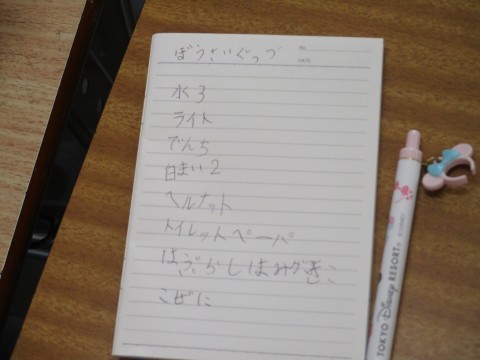 ぼうさいぐっづ
水3
ライト
でんち
白まい2
ヘルメット
トイレットペーパ
はぶらしはみがきこ
こぜに
TOKYO Disney RESORT